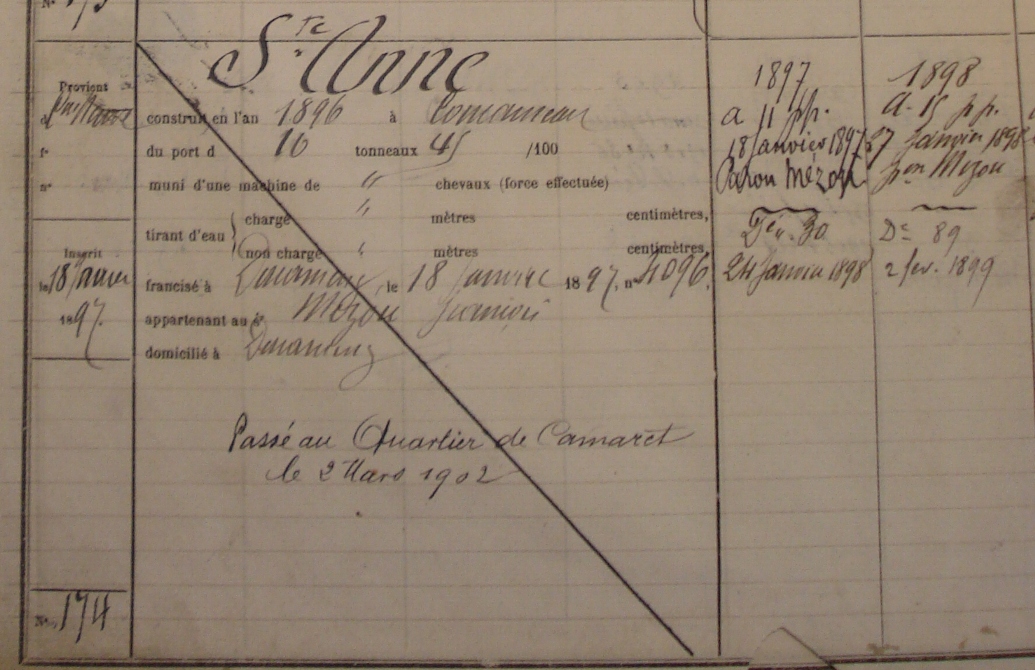 Ste Anne
Provient
d
fº
nº
Inscrit
le 18 Janvier
1897.
construit en l'an 1896 à Concarneau
du port d 16 tonneaux 45 /100
muni d'une machine de " chevaux (force effectuée)
tirant d'eau { chargé " mètres centimètres,
non chargé " mètres centimètres,
francisé à Douarnenez, le 18 Janvier 1897. nº 4096.
appartenant au Sr Mézou François
domicilié à Douarnenez
Passé au Quartier de Camaret
le 2 Mars 1902
Nº 174
1897
a 11 pp.
18 Janvier 1897
Patron Mézou
Dév. 30
24 Janvier 1898
1898
a 15 pp.
27 Janvier 1898
pon Mézou
Dc 89
2 fev. 1899